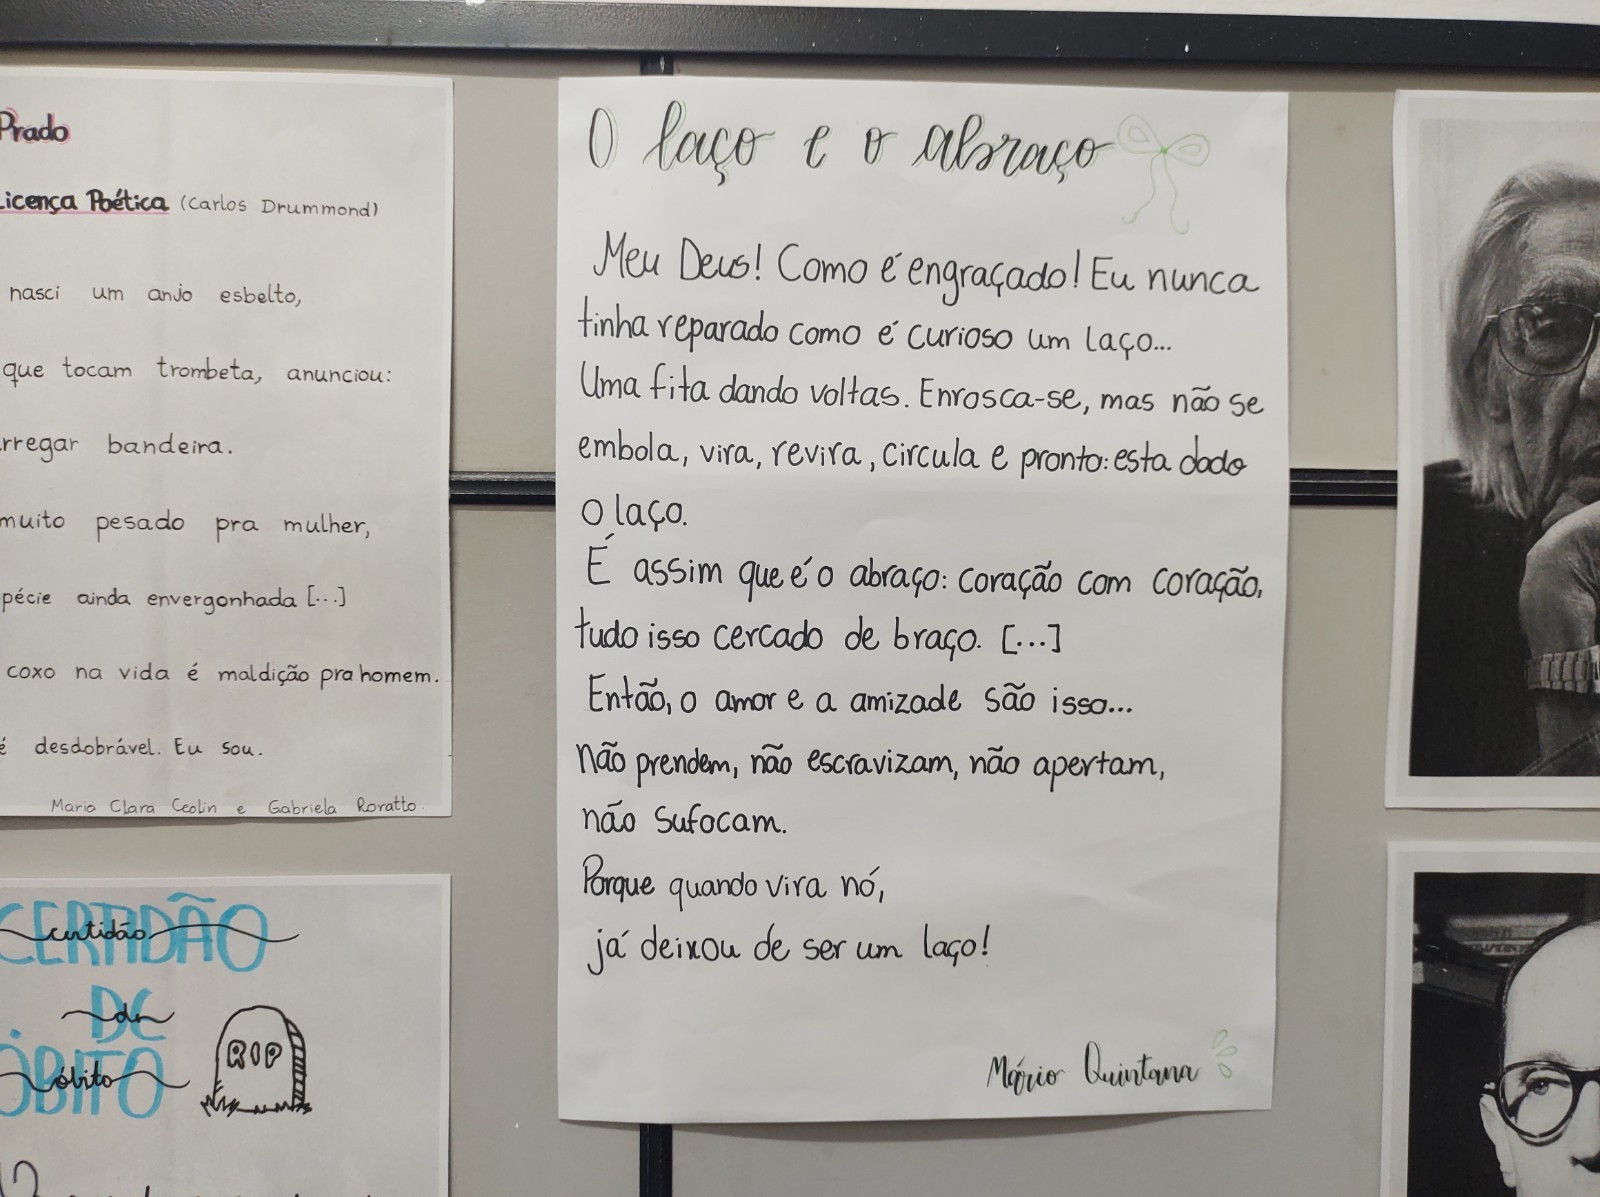 Prado
Licença Poética (Carlos Drummond)
nasci um anjo esbelto,
que tocam trombeta, anunciou:
rregar bandeira.
muito pesado pra mulher,
pécie ainda envergonhada [...]
coxo na vida é maldição pra homem.
é desdobrável. Eu sou.
Maria Clara Ceolin e Gabriela Roratto.
CERTIDÃO
certidão
DE
de
ÓBITO
óbito
RIP
O laço e o abraço
Meu Deus! Como é engraçado! Eu nunca
tinha reparado como é curioso um laço...
Uma fita dando voltas. Enrosca-se, mas não se
embola, vira, revira, circula e pronto: esta dado
o laço.
É assim que é o abraço: coração com coração,
tudo isso cercado de braço. [...]
Então, o amor e a amizade são isso...
não prendem, não escravizam, não apertam,
não sufocam.
Porque quando vira nó,
já deixou de ser um laço!
Mário Quintana